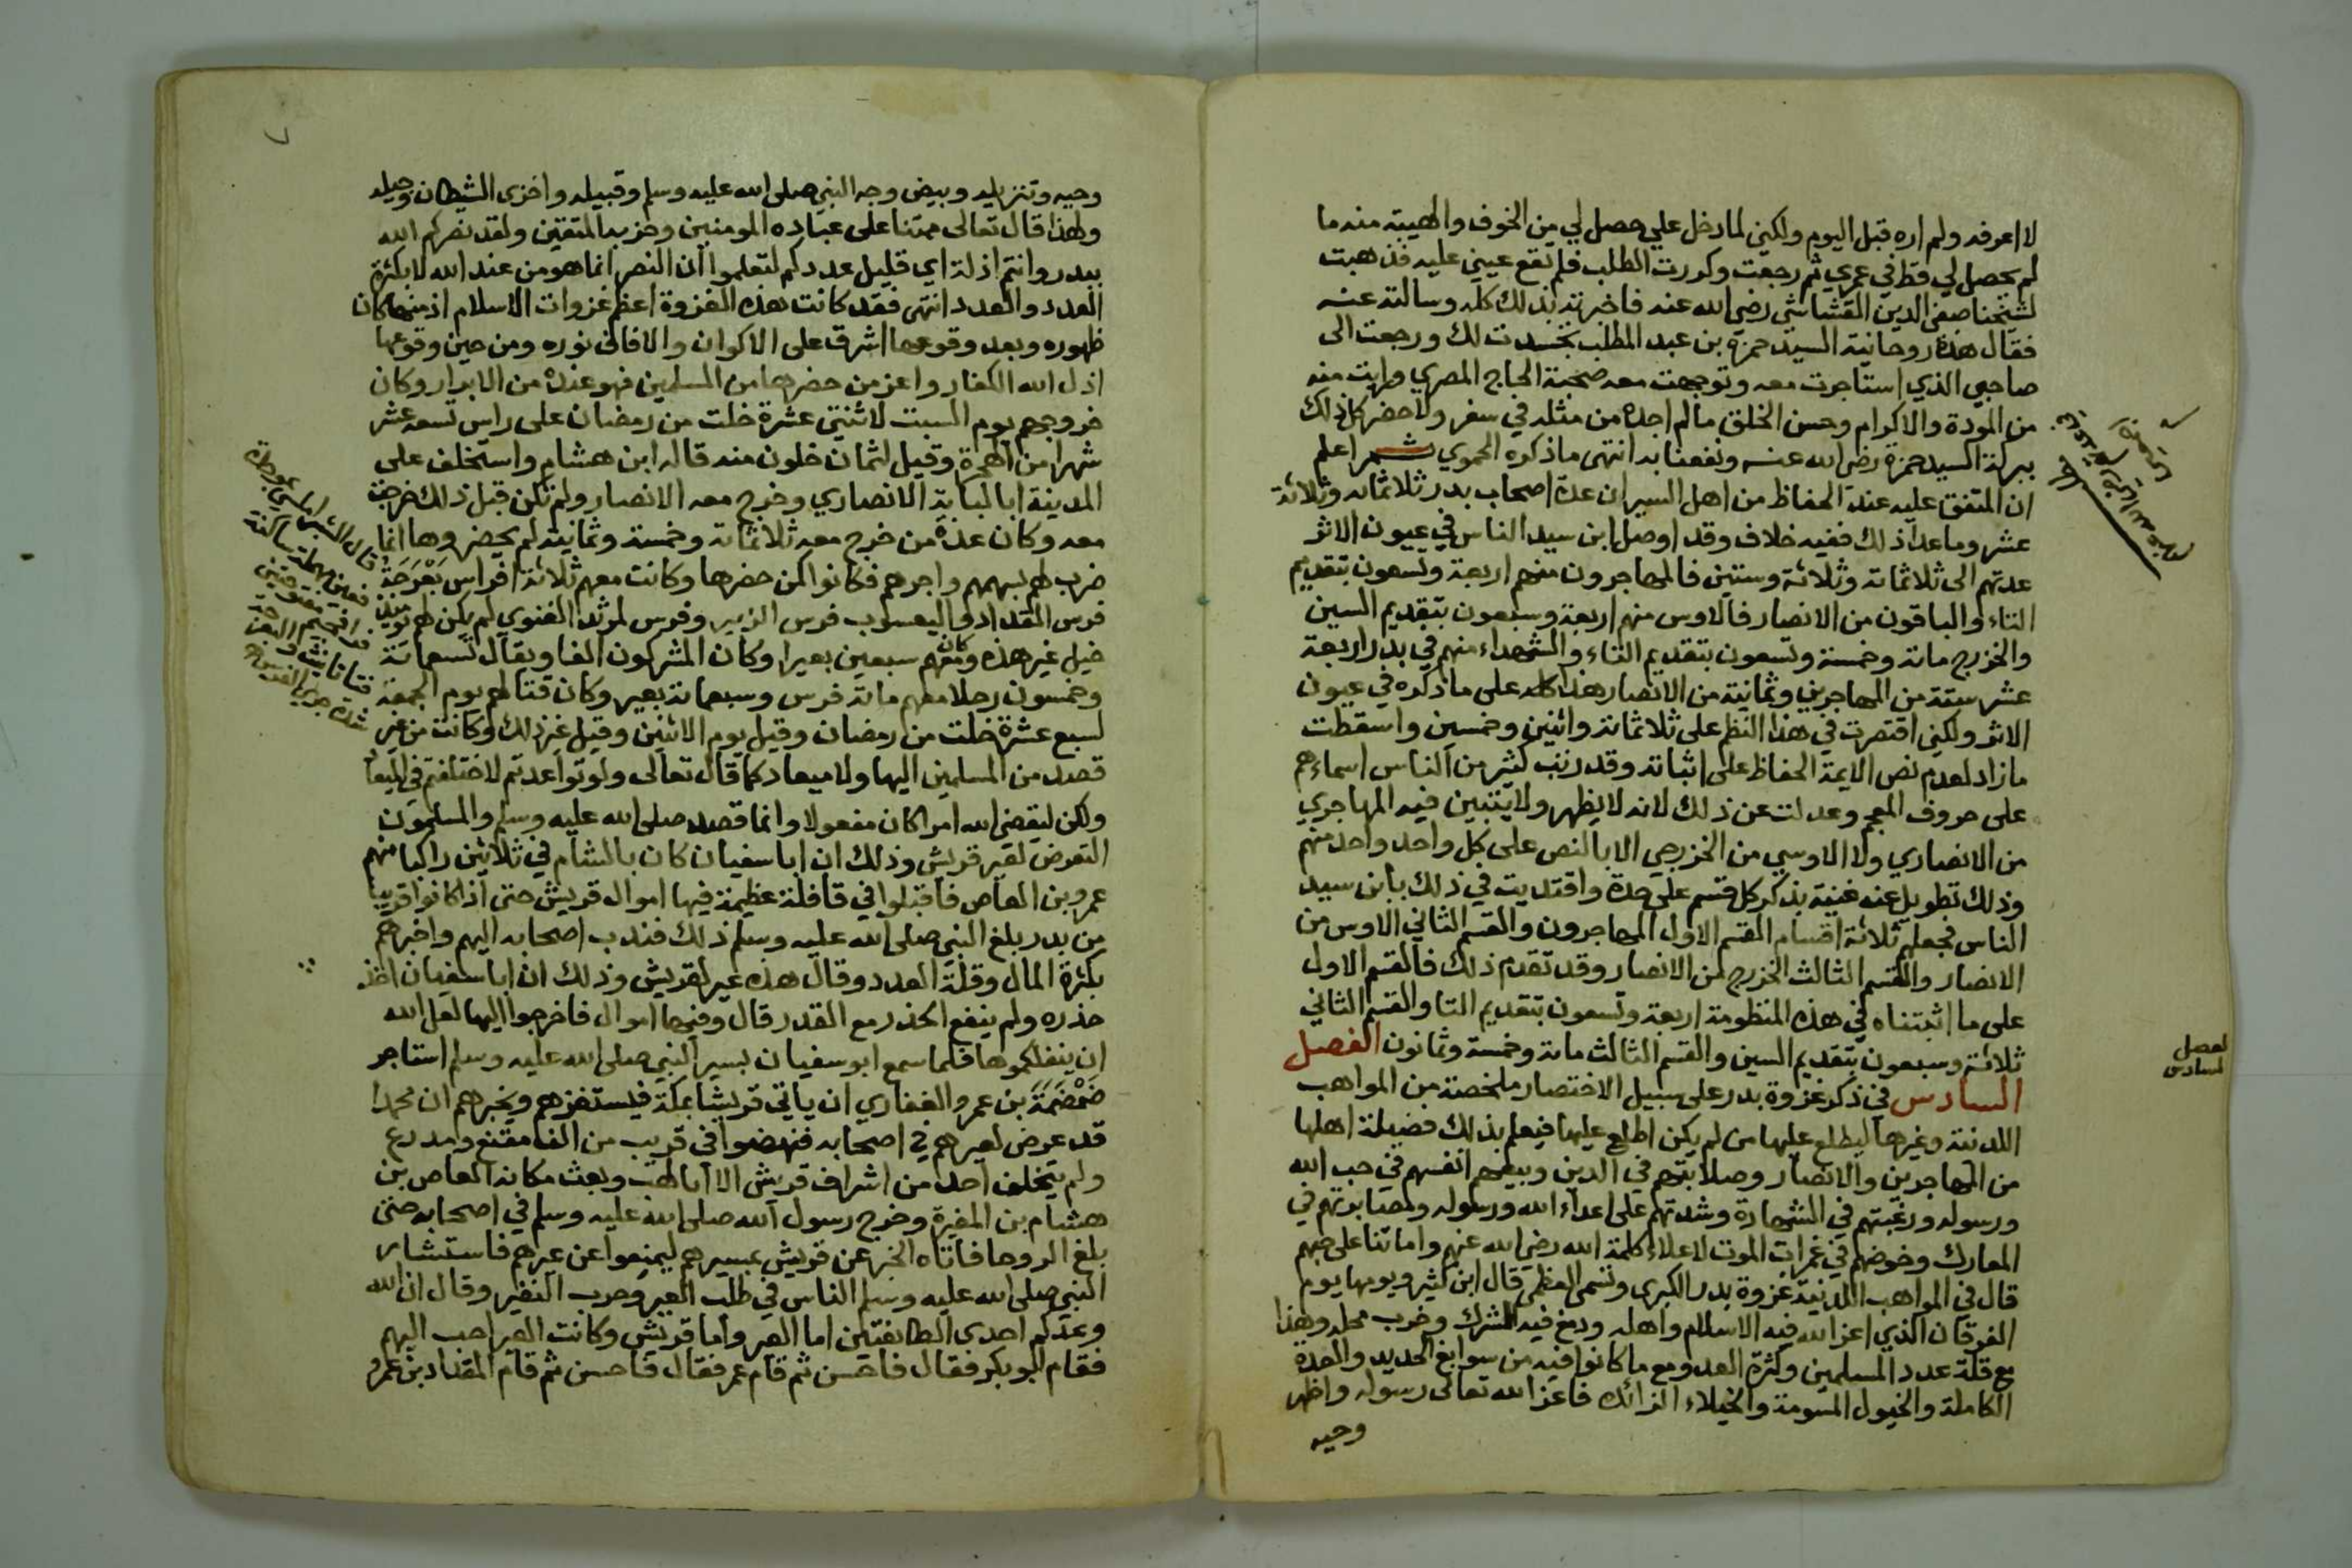 لا اعرفه ولم اره قبل اليوم ولكن لما دخل علي حصل لي من الخوف والهيبة منه ما
لم يحصل لي قط في عمري ثم رجعت وكررت الطلب فلم تقع عيني عليه فذهبت
لشيخنا صفي الدين القشاشي رضي الله عنه فاخبرته بذلك كله وسالته عنه
فقال هذه روحانية السيد حمزة بن عبد المطلب تجسدت لك ورجعت الى
صاحبي الذي استاجرت معه وتوجهت معه صحبة الحاج المصري ورايت منه
من المودة والاكرام وحسن الخلق ما لم اجده من مثله في سفر ولا حضر كل ذلك
ببركة السيد حمزة رضي الله عنه ونفعنا به انتهى ما ذكره الحموي ثم اعلم
ان المتفق عليه عند الحفاظ من اهل السير ان عدة اصحاب بدر ثلاثمائة وثلاثة
عشر وما عدا ذلك ففيه خلاف وقد اوصل ابن سيد الناس في عيون الاثر
عدتهم الى ثلاثمائة وثلاثة وستين فالمهاجرون منهم اربعة وتسعون بتقديم
التاء والباقون من الانصار فالاوس منهم اربعة وسبعون بتقديم السين
والخزرج مائة وخمسة وتسعون بتقديم التاء والشهداء منهم في بدر اربعة
عشر ستة من المهاجرين وثمانية من الانصار هذا كله على ما ذكره في عيون
الاثر ولكني اقتصرت في هذا النظم على ثلاثمائة واثنين وخمسين واسقطت
ما زاد لعدم نص الايمة الحفاظ على اثباته وقد رتب كثير من الناس اسماءهم
على حروف المعجم وعدلت عن ذلك لانه لا يظهر ولا يتبين فيه المهاجري
من الانصاري ولا الاوسي من الخزرجي الا بالنص على كل واحد واحد منهم
وذلك تطويل عنه غنية بذكر كل قسم على حدة واقتديت في ذلك بابن سيد
الناس فجعلهم ثلاثة اقسام القسم الاول المهاجرون والقسم الثاني الاوس من
الانصار والقسم الثالث الخزرج من الانصار وقد تقدم ذلك فالقسم الاول
على ما اثبتناه في هذه المنظومة اربعة وتسعون بتقديم التا والقسم الثاني
ثلاثة وسبعون بتقديم السين والقسم الثالث مائة وخمسة وثمانون الفصل
السادس في ذكر غزوة بدر على سبيل الاختصار ملخصة من المواهب
اللدنية وغيرها ليطلع عليها من لم يكن اطلع عليها فيعلم بذلك فضيلة اهلها
من المهاجرين والانصار وصلابتهم في الدين وبيعهم انفسهم في حب الله
ورسوله ورغبتهم في الشهادة وشدتهم على اعداء الله ورسوله ومصابرتهم في
المعارك وخوضهم في غمرات الموت لاعلاء كلمة الله رضي الله عنهم واماتنا على حبهم
قال في المواهب اللدنية غزوة بدر الكبرى وتسمى العظمى قال ابن كثير ويومها يوم
الفرقان الذي اعز الله فيه الاسلام واهله ودمغ فيه الشرك وخرب محله وهذا
مع قلة عدد المسلمين وكثرة العدو مع ما كانوا فيه من سوابغ الحديد والعدة
الكاملة والخيول المسومة والخيلاء الزائده فاعز الله تعالى رسوله واظهر
وحيه
الفصل
السادس
وحيه وتنزيله وبيض وجه النبي صلى الله عليه وسلم وقبيله واخزى الشيطان وجيله
ولهذا قال تعالى ممتنا على عباده المومنين وحزبه المتقين ولقد نصركم الله
ببدر وانتم اذلة اي قليل عددكم لتعلموا ان النصر انما هو من عند الله لا بكثرة
العدد والعدد انتهى فقد كانت هذه الغزوة اعظم غزوات الاسلام اذ منها كان
ظهوره وبعد وقوعها اشرق على الاكوان والافاق نوره ومن حين وقوعها
اذل الله الكفار واعز من حضرها من المسلمين فهو عنده من الابرار وكان
خروجهم يوم السبت لاثنتي عشرة خلت من رمضان على راس تسعه عشر
شهرا من الهجرة وقيل لثمان خلون منه قاله ابن هشام واستخلف على
المدينة ابا لبابة الانصاري وخرج معه الانصار ولم تكن قبل ذلك خرجت
معه وكان عدة من خرج معه ثلاثمائة وخمسة وثمانية لم يحضروها انما
ضرب لهم بسهمهم واجرهم فكانوا كمن حضرها وكانت معهم ثلاثة افراس بَعْرَجَة
فرس المقداد واليعسوب فرس الزبير وفرس لمرثد الغنوي لم يكن لهم يوميذ
خيل غير هذه وكان معهم سبعين بعيرا وكان المشركون الفا ويقال تسعمائة
وخمسون رجلا معهم مائة فرس وسبعمائة بعير وكان قتالهم يوم الجمعة
لسبع عشرة خلت من رمضان وقيل يوم الاثنين وقيل غير ذلك وكانت من غير
قصد من المسلمين اليها ولا ميعاد كما قال تعالى ولو تواعدتم لاختلفتم في الميعاد
ولكن ليقضي الله امرا كان مفعولا وانما قصد صلى الله عليه وسلم والمسلمون
التعرض لعير قريش وذلك ان ابا سفيان كان بالشام في ثلاثين راكبا منهم
عمرو بن العاص فاقبلوا في قافلة عظيمة فيها اموال قريش حتى اذا كانوا قريبا
من بدر بلغ النبي صلى الله عليه وسلم ذلك فندب اصحابه اليهم واخبرهم
بكثرة المال وقلة العدد وقال هذه عير لقريش وذلك ان ابا سفيان اخذ
حذره ولم ينفع الحذر مع القدر قال وفيها اموال فاخرجوا اليها لعل الله
ان ينفلكموها فلما سمع ابو سفيان بسير النبي صلى الله عليه وسلم استاجر
ضَمْضَمَ بن عمرو الغفاري ان ياتي قريشا بمكة فيستفزهم ويخبرهم ان محمدا
قد عرض لعيرهم في اصحابه فنهضوا في قريب من الف مقنع ومدرع
ولم يتخلف احد من اشراف قريش الا ابا لهب وبعث مكانه العاص بن
هشام بن المغيرة وخرج رسول الله صلى الله عليه وسلم في اصحابه حتى
بلغ الروحا فاتاه الخبر عن قريش بمسيرهم ليمنعوا عن عيرهم فاستشار
النبي صلى الله عليه وسلم الناس في طلب العير وحرب النفير وقال ان الله
وعدكم احدى الطائفتين اما العير واما قريش وكانت العير احب اليهم
فقام ابو بكر فقال فاحسن ثم قام عمر فقال فاحسن ثم قام المقداد بن عمرو